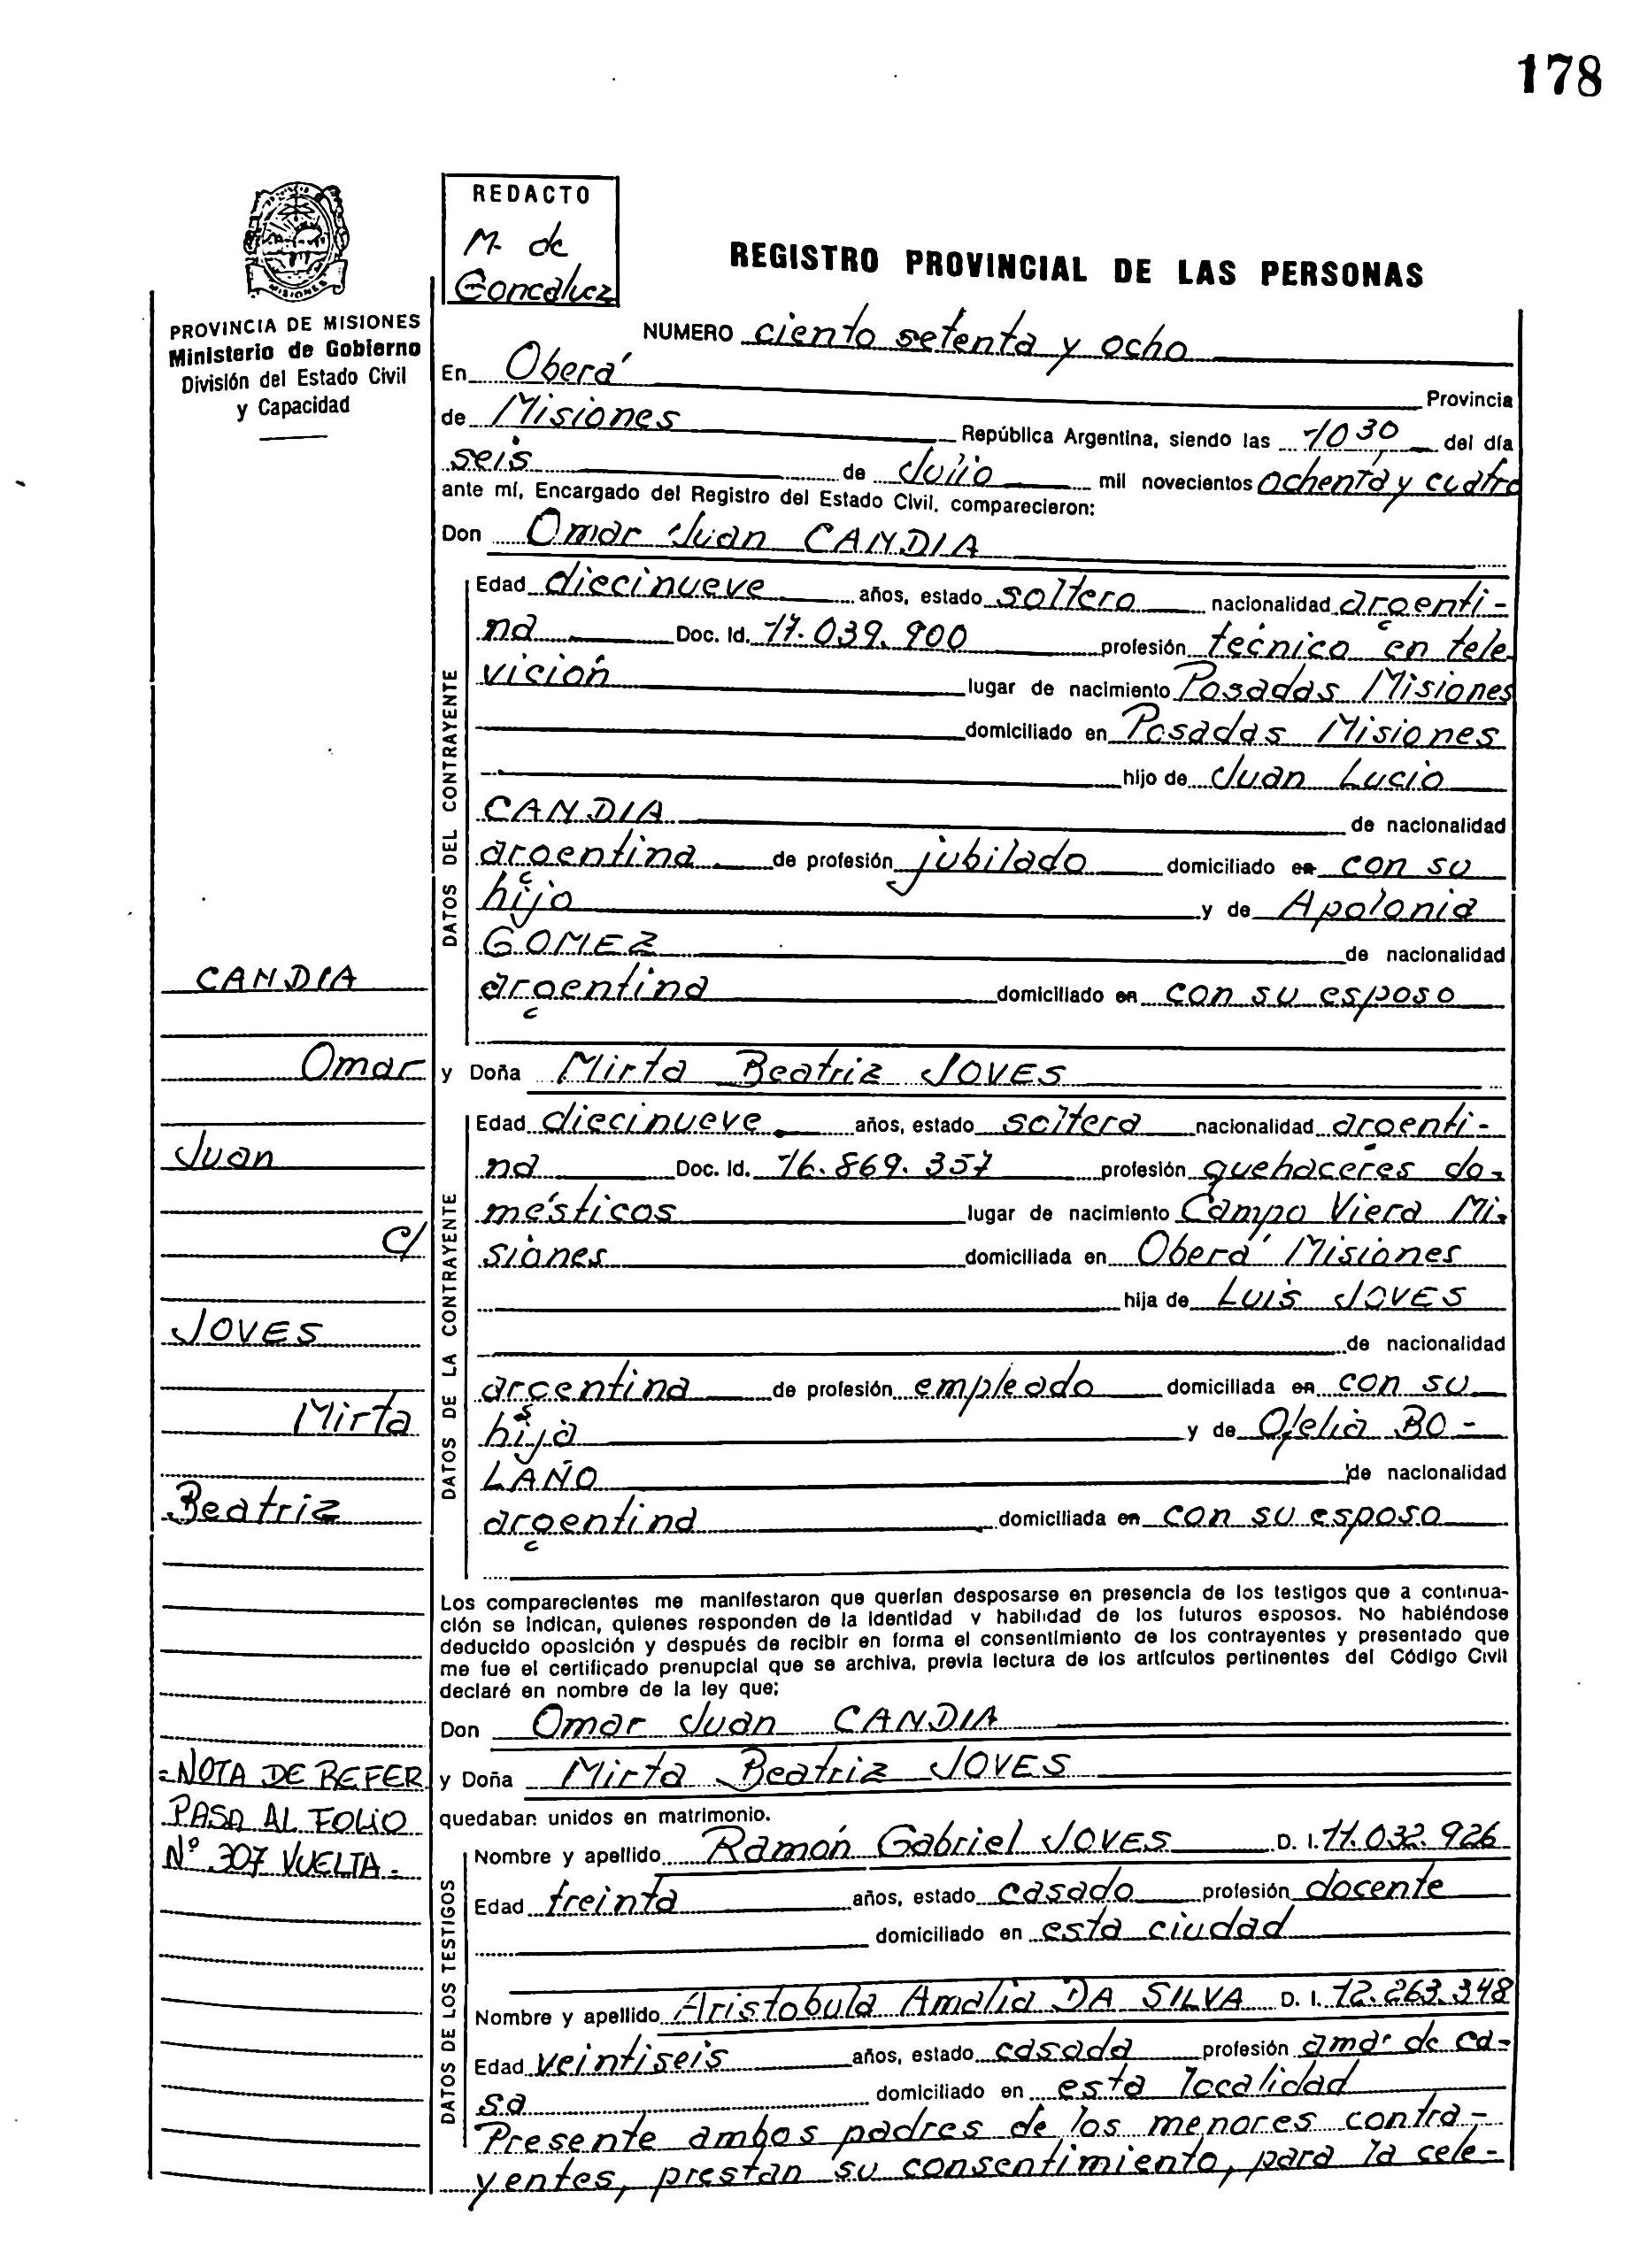 178
REDACTO
M. de
Goncalvez
REGISTRO PROVINCIAL DE LAS PERSONAS
MISIONES
PROVINCIA DE MISIONES
Ministerio de Gobierno
División del Estado Civil
y Capacidad
NUMERO ciento setenta y ocho
En Oberá Provincia
de Misiones República Argentina, siendo las 1030 del día
seis de Julio mil novecientos ochenta y cuatro
ante mí, Encargado del Registro del Estado Civil, comparecieron:
Don Omar Juan CANDIA
DATOS DEL CONTRAYENTE
Edad diecinueve años, estado soltero nacionalidad argenti-
na Doc. Id. 17.039.900 profesión técnico en tele
visión lugar de nacimiento Posadas Misiones
domiciliado en Posadas Misiones
hijo de Juan Lucio
CANDIA de nacionalidad
argentina de profesión jubilado domiciliado en con su
hijo y de Apolonia
GOMEZ de nacionalidad
argentina domiciliado en con su esposo
y Doña Mirta Beatriz JOVES
DATOS DE LA CONTRAYENTE
Edad diecinueve años, estado soltera nacionalidad argenti-
na Doc. Id. 16.869.357 profesión quehaceres do-
mésticos lugar de nacimiento Campo Viera Mi-
siones domiciliada en Oberá Misiones
hija de Luis JOVES
de nacionalidad
argentina de profesión empleado domiciliada en con su
hija y de Ofelia BO-
LAÑO de nacionalidad
argentina domiciliada en con su esposo
CANDIA
Omar
Juan
c/
JOVES
Mirta
Beatriz
Los comparecientes me manifestaron que querían desposarse en presencia de los testigos que a continua-
ción se indican, quienes responden de la identidad y habilidad de los futuros esposos. No habiéndose
deducido oposición y después de recibir en forma el consentimiento de los contrayentes y presentado que
me fue el certificado prenupcial que se archiva, previa lectura de los artículos pertinentes del Código Civil
declaré en nombre de la ley que;
Don Omar Juan CANDIA
y Doña Mirta Beatriz JOVES
quedaban unidos en matrimonio.
=NOTA DE REFER
PASA AL FOLIO
Nº 307 VUELTA.=
DATOS DE LOS TESTIGOS
Nombre y apellido Ramón Gabriel JOVES D. I. 11.032.926
Edad treinta años, estado casado profesión docente
domiciliado en esta ciudad
Nombre y apellido Aristobula Amalia DA SILVA D. I. 12.263.348
Edad veintiseis años, estado casada profesión ama de ca-
sa domiciliado en esta localidad
Presente ambos padres de los menores contra-
yentes, prestan su consentimiento, para la cele-